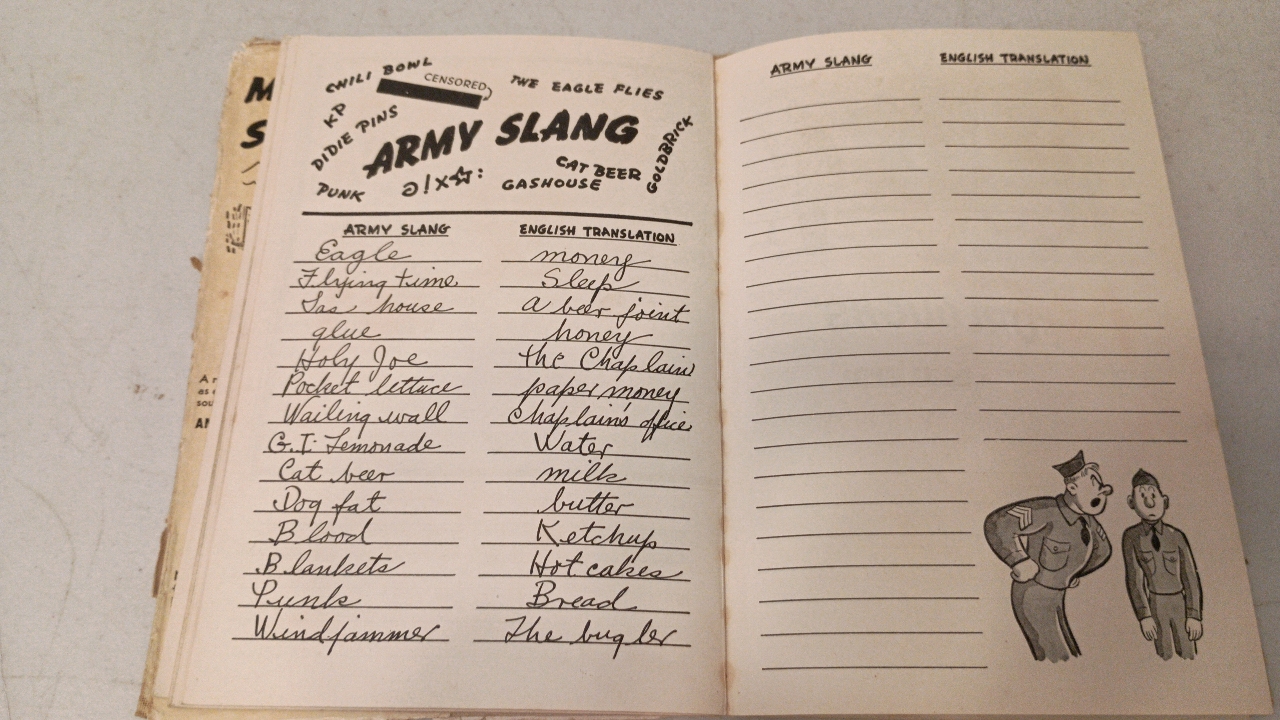 CHILI BOWL
CENSORED
THE EAGLE FLIES
KP
DIDIE PINS
ARMY SLANG
GOLDBRICK
PUNK
CAT BEER
GASHOUSE
ARMY SLANG ENGLISH TRANSLATION
Eagle money
Flying time Sleep
Gas house a beer joint
glue honey
Holy Joe the Chaplain
Pocket lettuce paper money
Wailing wall Chaplain's office
G.I. Lemonade Water
Cat beer milk
Dog fat butter
Blood Ketchup
Blankets Hot cakes
Punk Bread
Windjammer The bugler
ARMY SLANG ENGLISH TRANSLATION